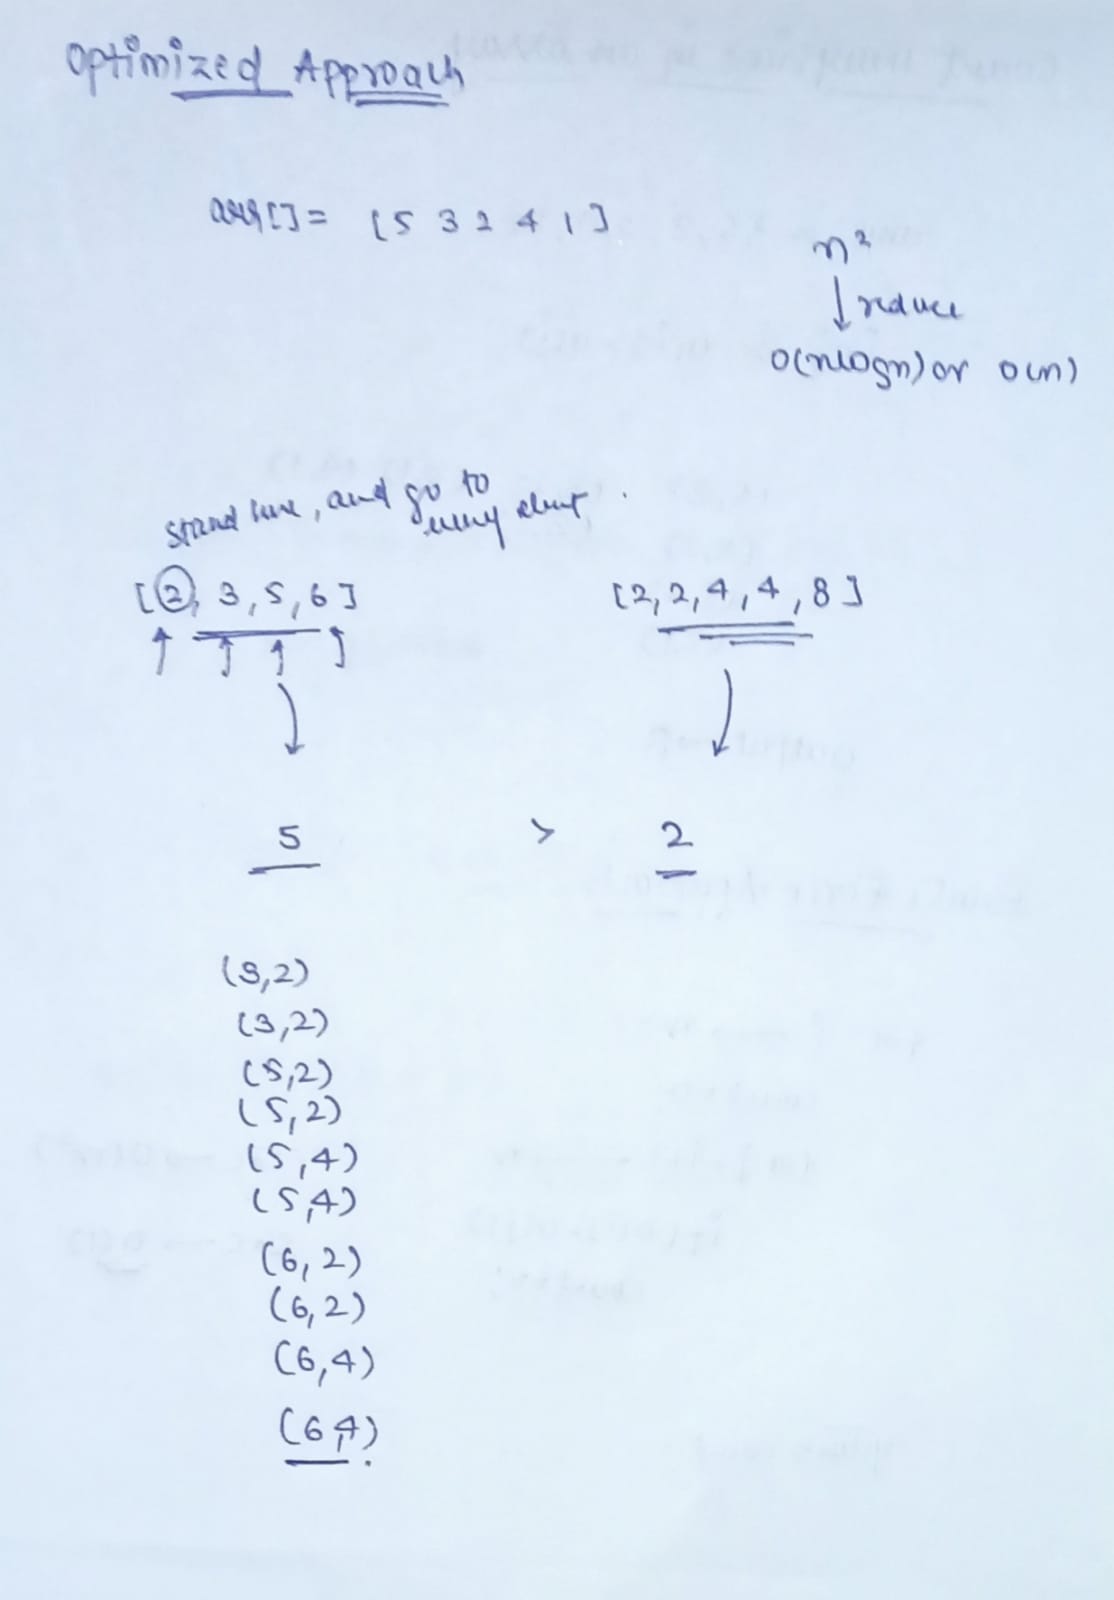 Optimized Approach
arr[] = [5 3 2 4 1]
n²
↓ reduce
O(nlogn) or O(n)
stand here, and go to
every elent.
[2, 3, 5, 6] [2, 2, 4, 4, 8]
5 > 2
(3,2)
(3,2)
(5,2)
(5,2)
(5,4)
(5,4)
(6,2)
(6,2)
(6,4)
(6,4).